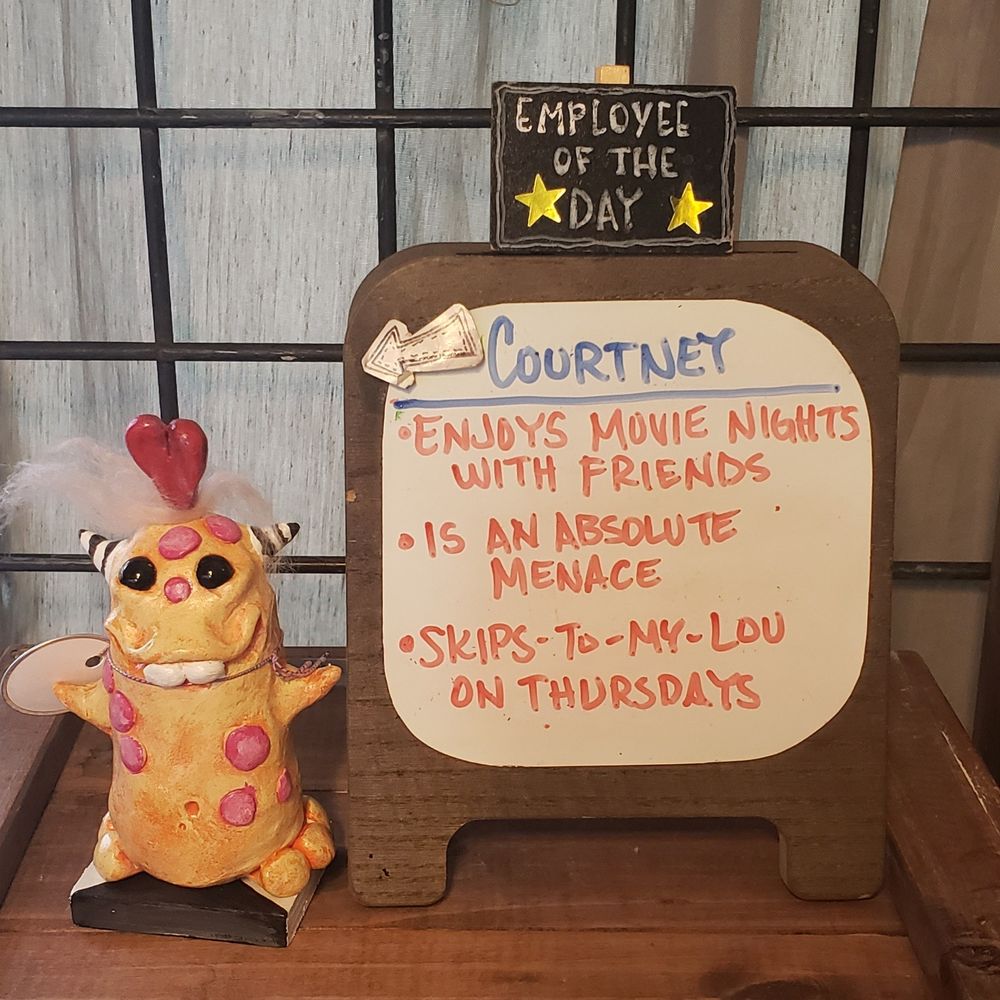 EMPLOYEE
OF THE
DAY
COURTNEY
• ENJOYS MOVIE NIGHTS
WITH FRIENDS
• IS AN ABSOLUTE
MENACE
• SKIPS-TO-MY-LOU
ON THURSDAYS